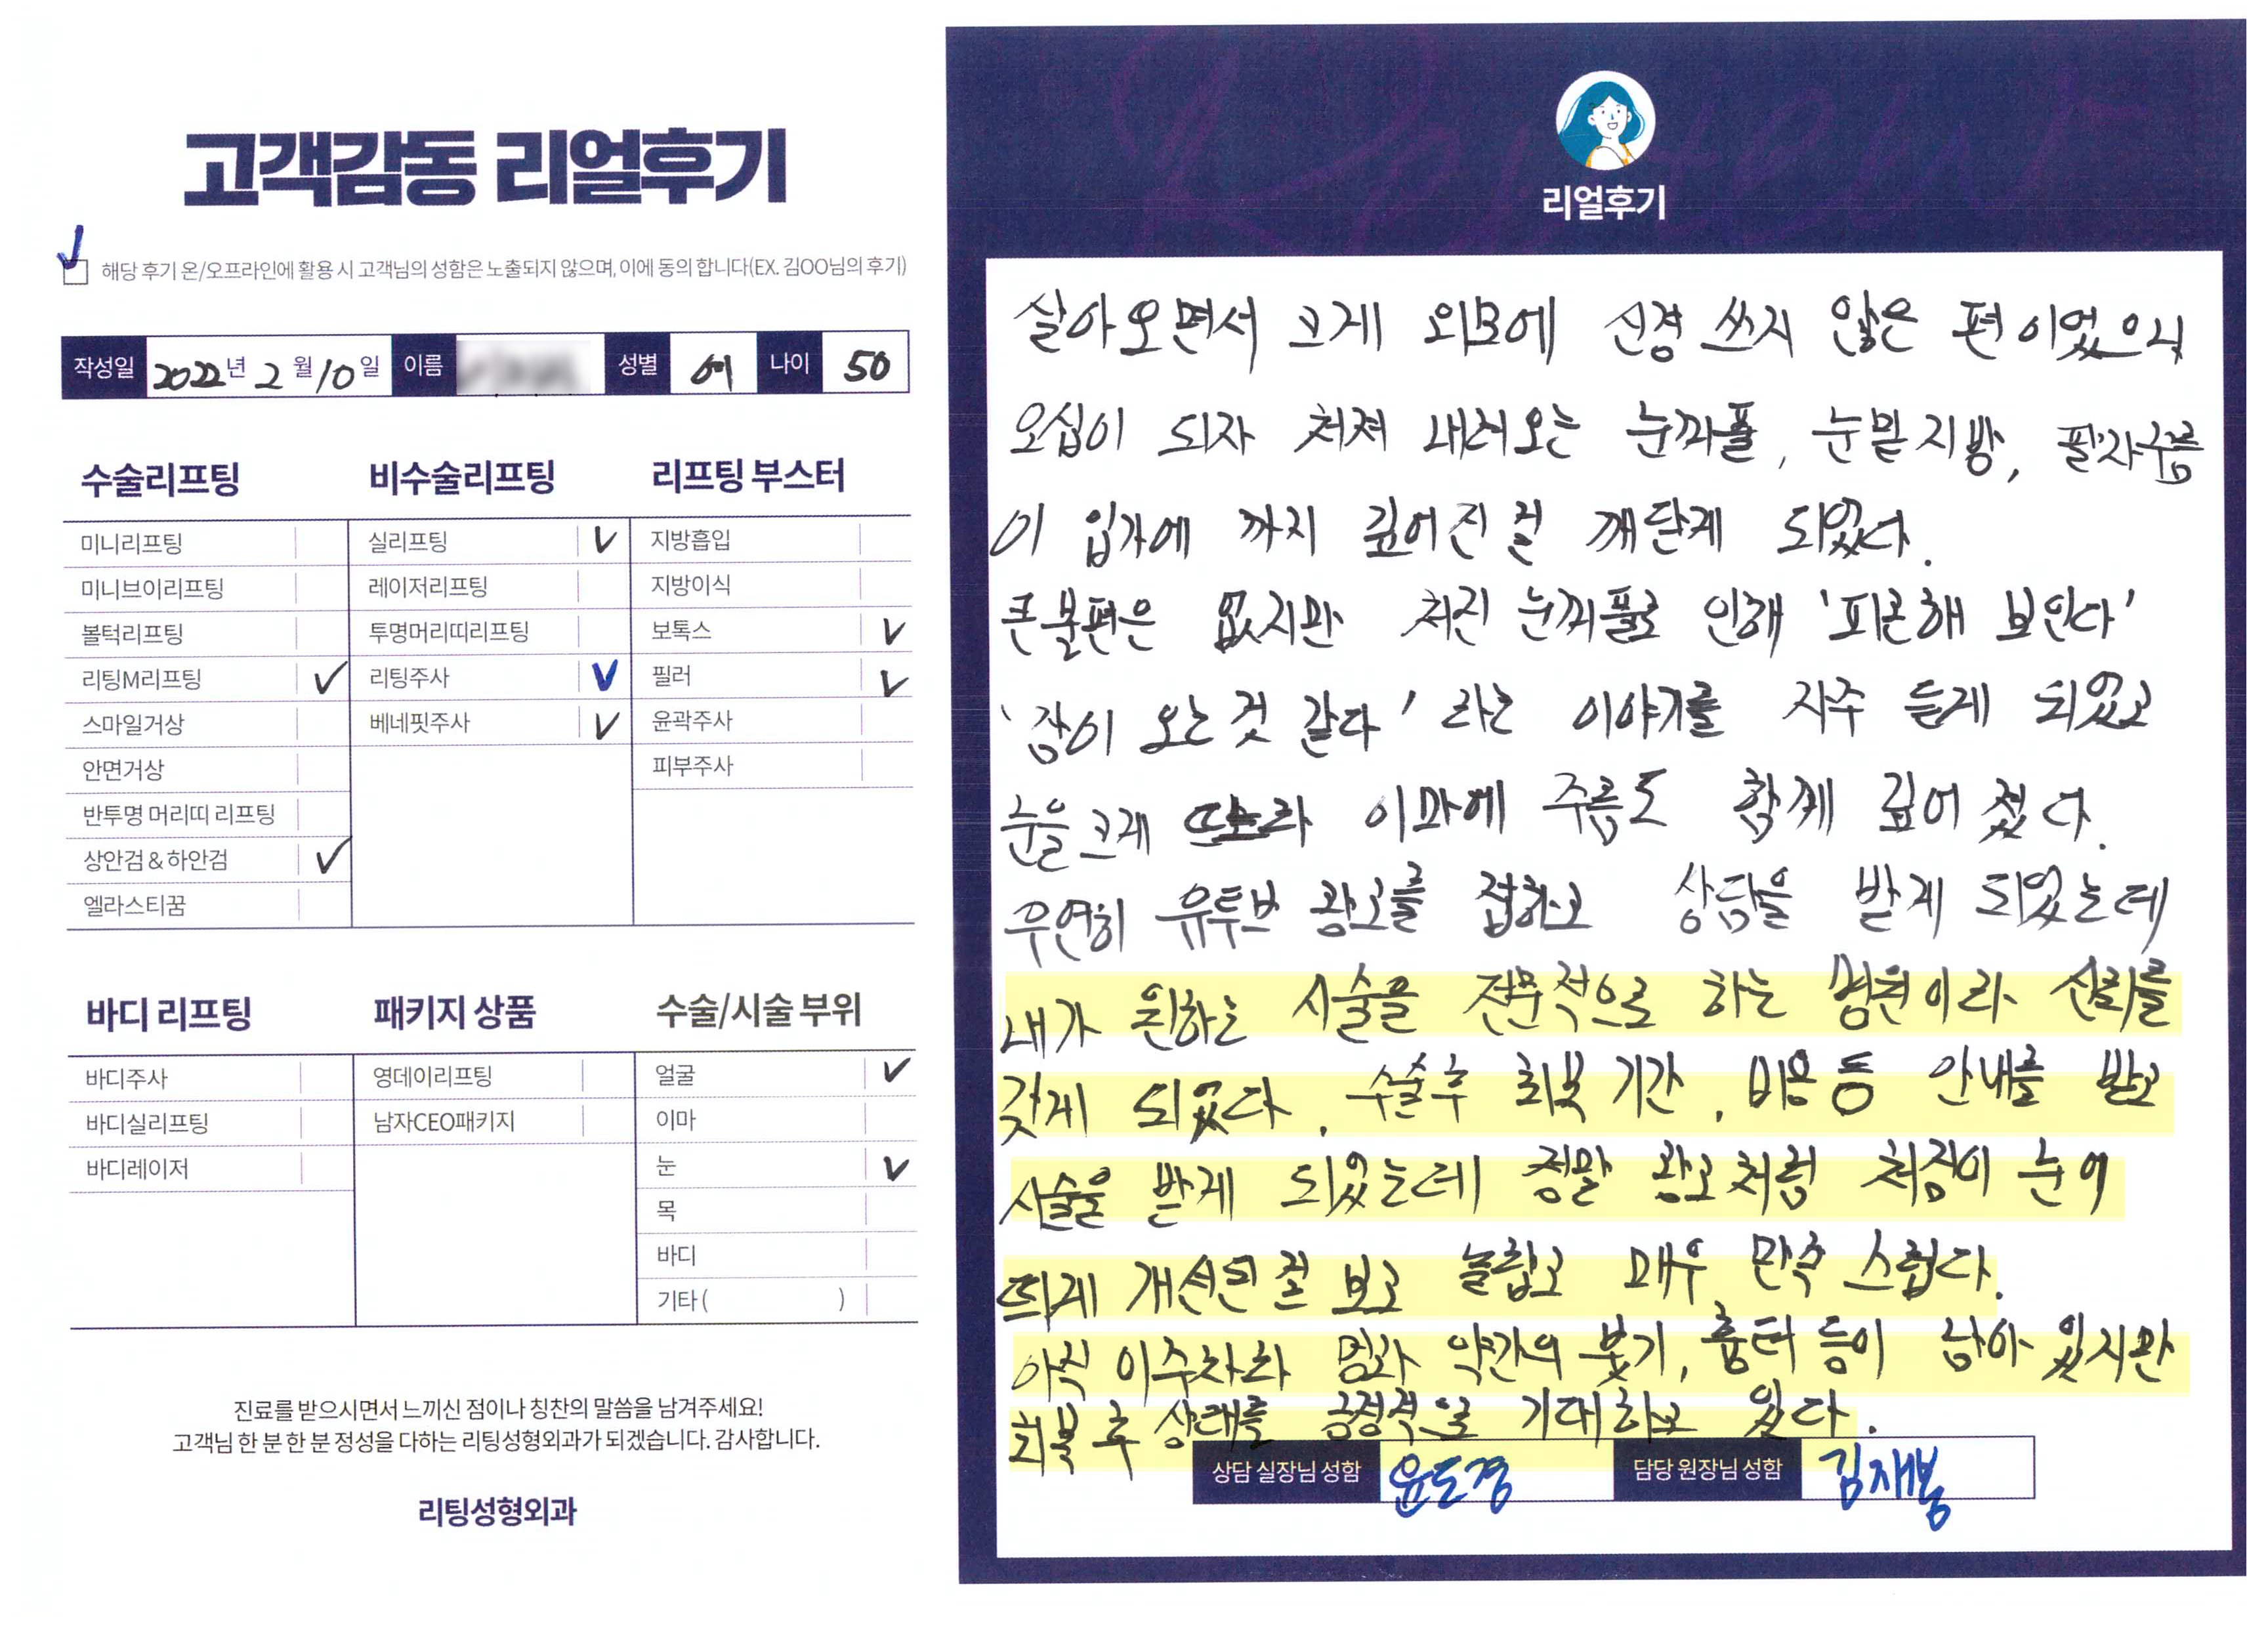 고객감동 리얼후기
해당 후기 온/오프라인에 활용 시 고객님의 성함은 노출되지 않으며, 이에 동의 합니다(EX. 김OO님의 후기)
작성일 2022년 2월 10일 이름 성별 여 나이 50
수술리프팅
미니리프팅
미니브이리프팅
볼턱리프팅
리팅M리프팅 ✓
스마일거상
안면거상
반투명 머리띠 리프팅
상안검 & 하안검 ✓
엘라스티꿈
비수술리프팅
실리프팅 ✓
레이저리프팅
투명머리띠리프팅
리팅주사 ✓
베네핏주사 ✓
리프팅 부스터
지방흡입
지방이식
보톡스 ✓
필러 ✓
윤곽주사
피부주사
바디 리프팅
바디주사
바디실리프팅
바디레이저
패키지 상품
영데이리프팅
남자CEO패키지
수술/시술 부위
얼굴 ✓
이마
눈 ✓
목
바디
기타 ( )
진료를 받으시면서 느끼신 점이나 칭찬의 말씀을 남겨주세요!
고객님 한 분 한 분 정성을 다하는 리팅성형외과가 되겠습니다. 감사합니다.
리팅성형외과
리얼후기
살아오면서 크게 외모에 신경 쓰지 않은 편이었으나
오십이 되자 처져 내려오는 눈꺼풀, 눈밑지방, 팔자주름
이 입가에 까지 깊어진 걸 깨닫게 되었다.
큰 불편은 없지만 처진 눈꺼풀로 인해 '피곤해 보인다'
'잠이 오는 것 같다' 라는 이야기를 자주 듣게 되었고
눈을 크게 이마에 주름도 함께 깊어 졌다.
우연히 유투브 광고를 접하고 상담을 받게 되었는데
내가 원하는 시술을 전문적으로 하는 병원이라 신뢰를
갖게 되었다. 수술후 회복 기간, 비용 등 안내를 받고
시술을 받게 되었는데 정말 광고처럼 처짐이 눈에
띄게 개선된걸 보고 놀랍고 매우 만족 스럽다.
아직 이주차라 멍과 약간의 붓기, 흉터 등이 남아 있지만
회복 후 상태를 긍정적으로 기대하고 있다.
상담 실장님 성함 윤도경 담당 원장님 성함 김재봉